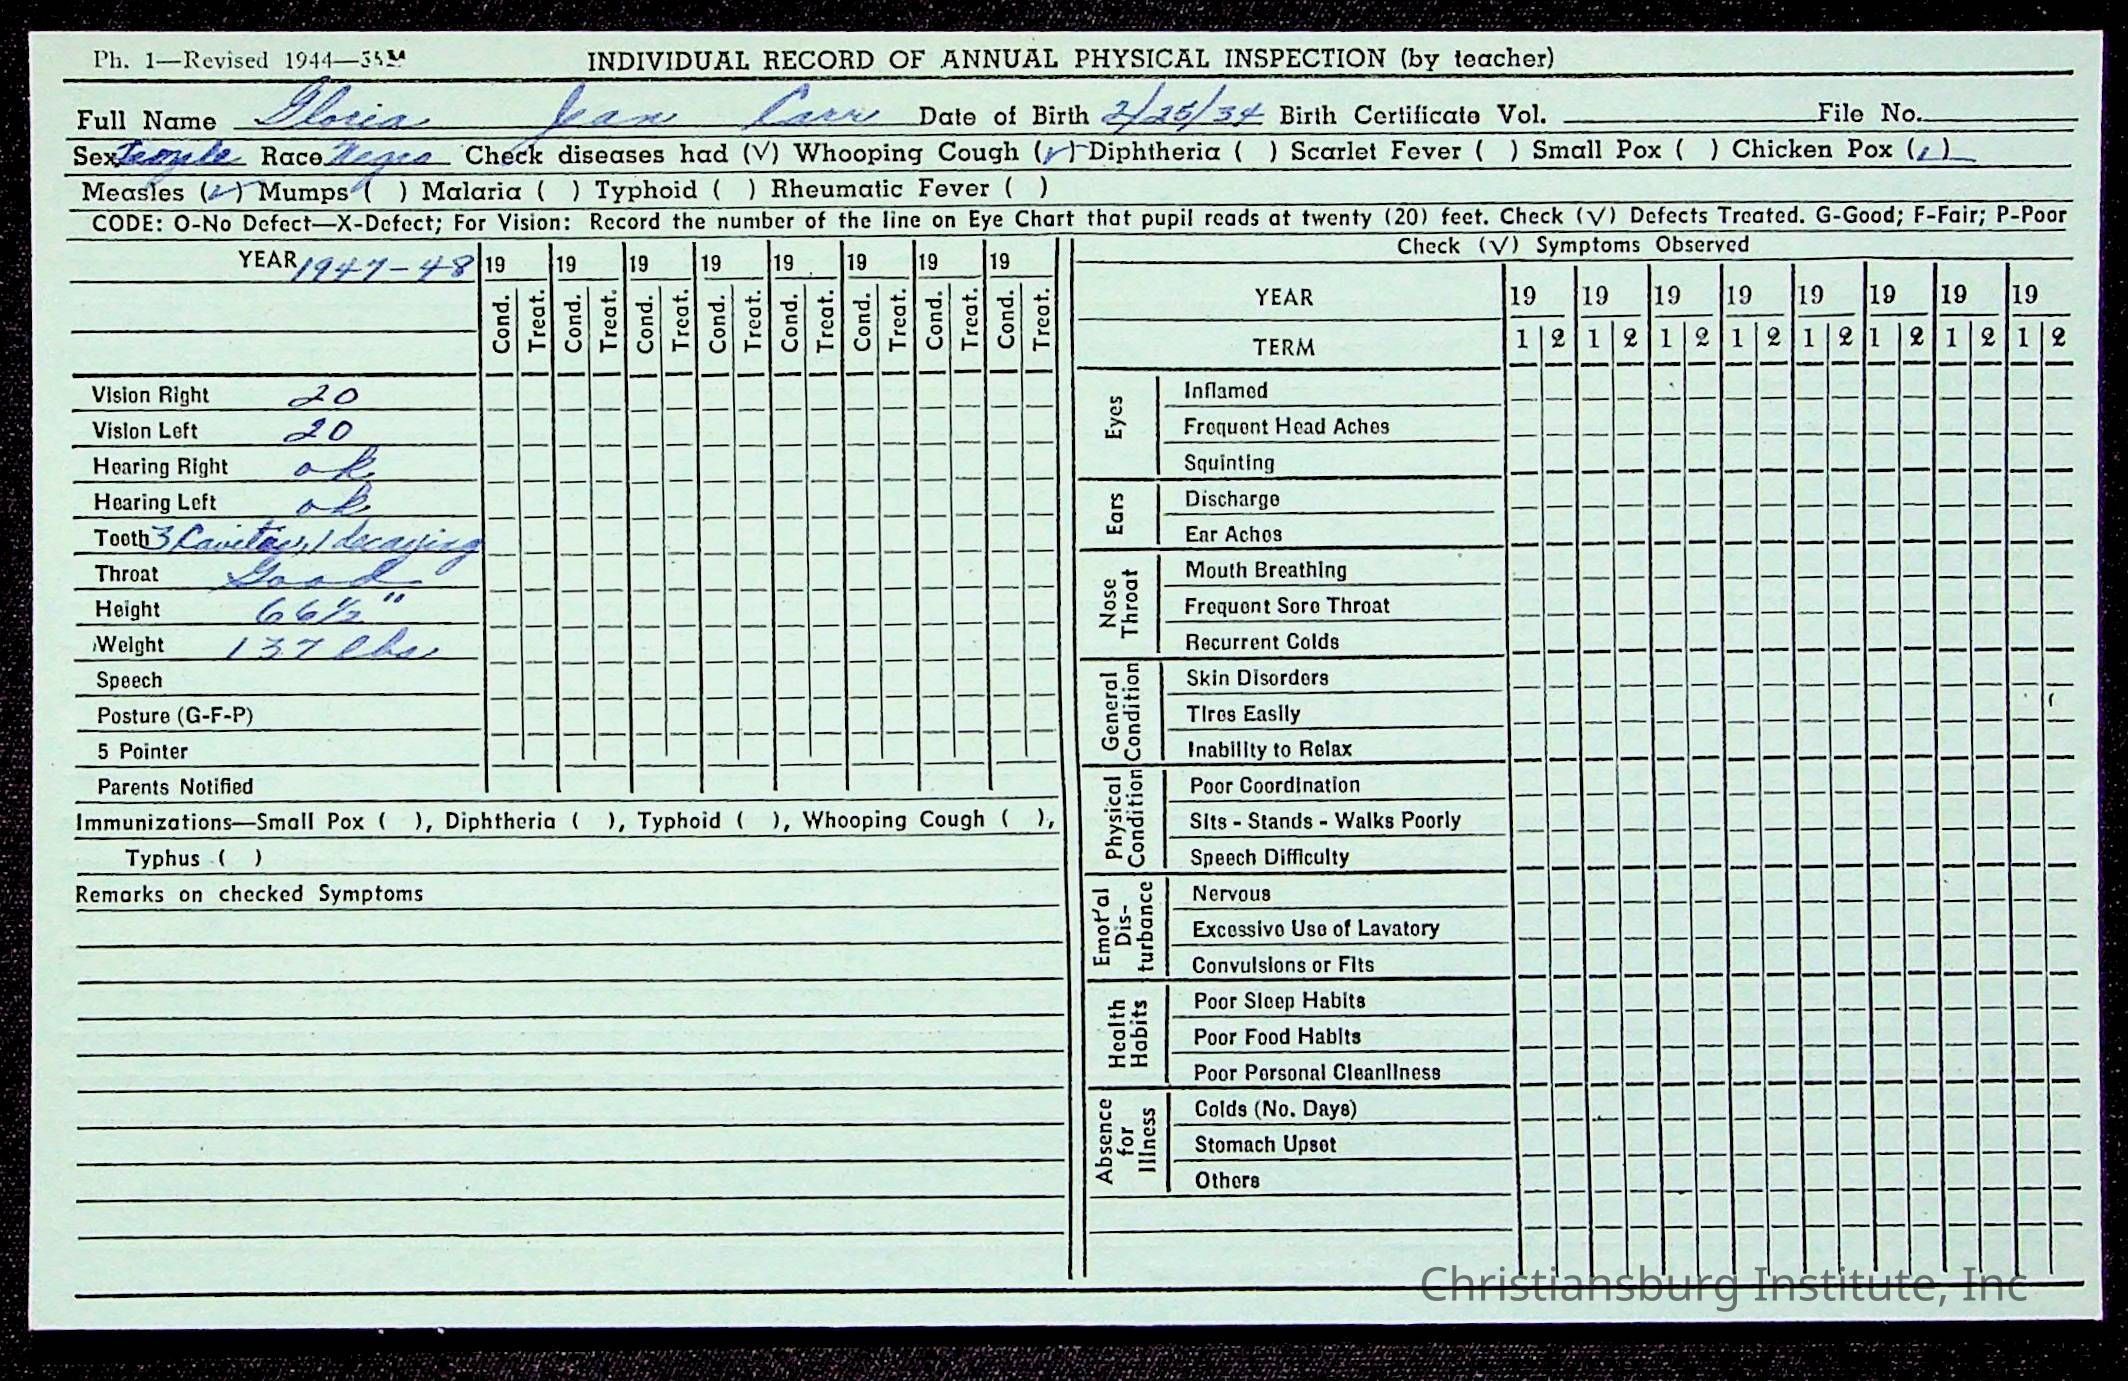 Ph. 1—Revised 1944—35M
INDIVIDUAL RECORD OF ANNUAL PHYSICAL INSPECTION (by teacher)
Full Name Gloria Jean Carr Date of Birth 2/25/34 Birth Certificate Vol. File No.
Sex Female Race Negro Check diseases had (√) Whooping Cough (✓) Diphtheria ( ) Scarlet Fever ( ) Small Pox ( ) Chicken Pox (✓)
Measles (✓) Mumps ( ) Malaria ( ) Typhoid ( ) Rheumatic Fever ( )
CODE: O-No Defect—X-Defect; For Vision: Record the number of the line on Eye Chart that pupil reads at twenty (20) feet. Check (√) Defects Treated. G-Good; F-Fair; P-Poor
YEAR 1947-48 19 19 19 19 19 19 19 19
Cond. Treat. Cond. Treat. Cond. Treat. Cond. Treat. Cond. Treat. Cond. Treat. Cond. Treat. Cond. Treat.
Vision Right 20
Vision Left 20
Hearing Right ok
Hearing Left ok
Teeth 3 Cavities, 1 decaying
Throat Good
Height 66½"
Weight 137 lbs
Speech
Posture (G-F-P)
5 Pointer
Parents Notified
Immunizations—Small Pox ( ), Diphtheria ( ), Typhoid ( ), Whooping Cough ( ),
Typhus ( )
Remarks on checked Symptoms
Check (√) Symptoms Observed
YEAR 19 19 19 19 19 19 19 19
TERM 1 2 1 2 1 2 1 2 1 2 1 2 1 2 1 2
Eyes
Inflamed
Frequent Head Aches
Squinting
Ears
Discharge
Ear Aches
Nose Throat
Mouth Breathing
Frequent Sore Throat
Recurrent Colds
General Condition
Skin Disorders
Tires Easily
Inability to Relax
Physical Condition
Poor Coordination
Sits - Stands - Walks Poorly
Speech Difficulty
Emot'al Dis-turbance
Nervous
Excessive Use of Lavatory
Convulsions or Fits
Health Habits
Poor Sleep Habits
Poor Food Habits
Poor Personal Cleanliness
Absence for Illness
Colds (No. Days)
Stomach Upset
Others
Christiansburg Institute, Inc